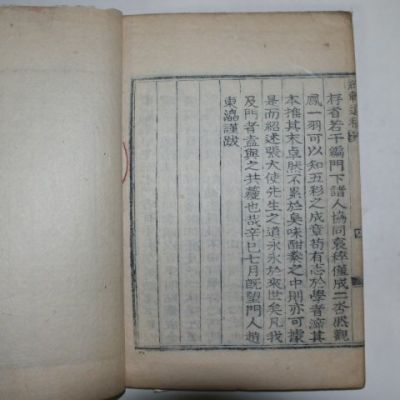 存者若干編門下諸人協同裒稡僅成二冊然觀
鳳一羽可以知五彩之成章苟有志於學者泝其
本推其末卓然不累於臭味酣豢之中則亦可據
是而紹述張大使先生之道永永於來世矣凡我
及門者盍與之共蘉也哉辛巳七月旣望門人趙
東瀛謹跋